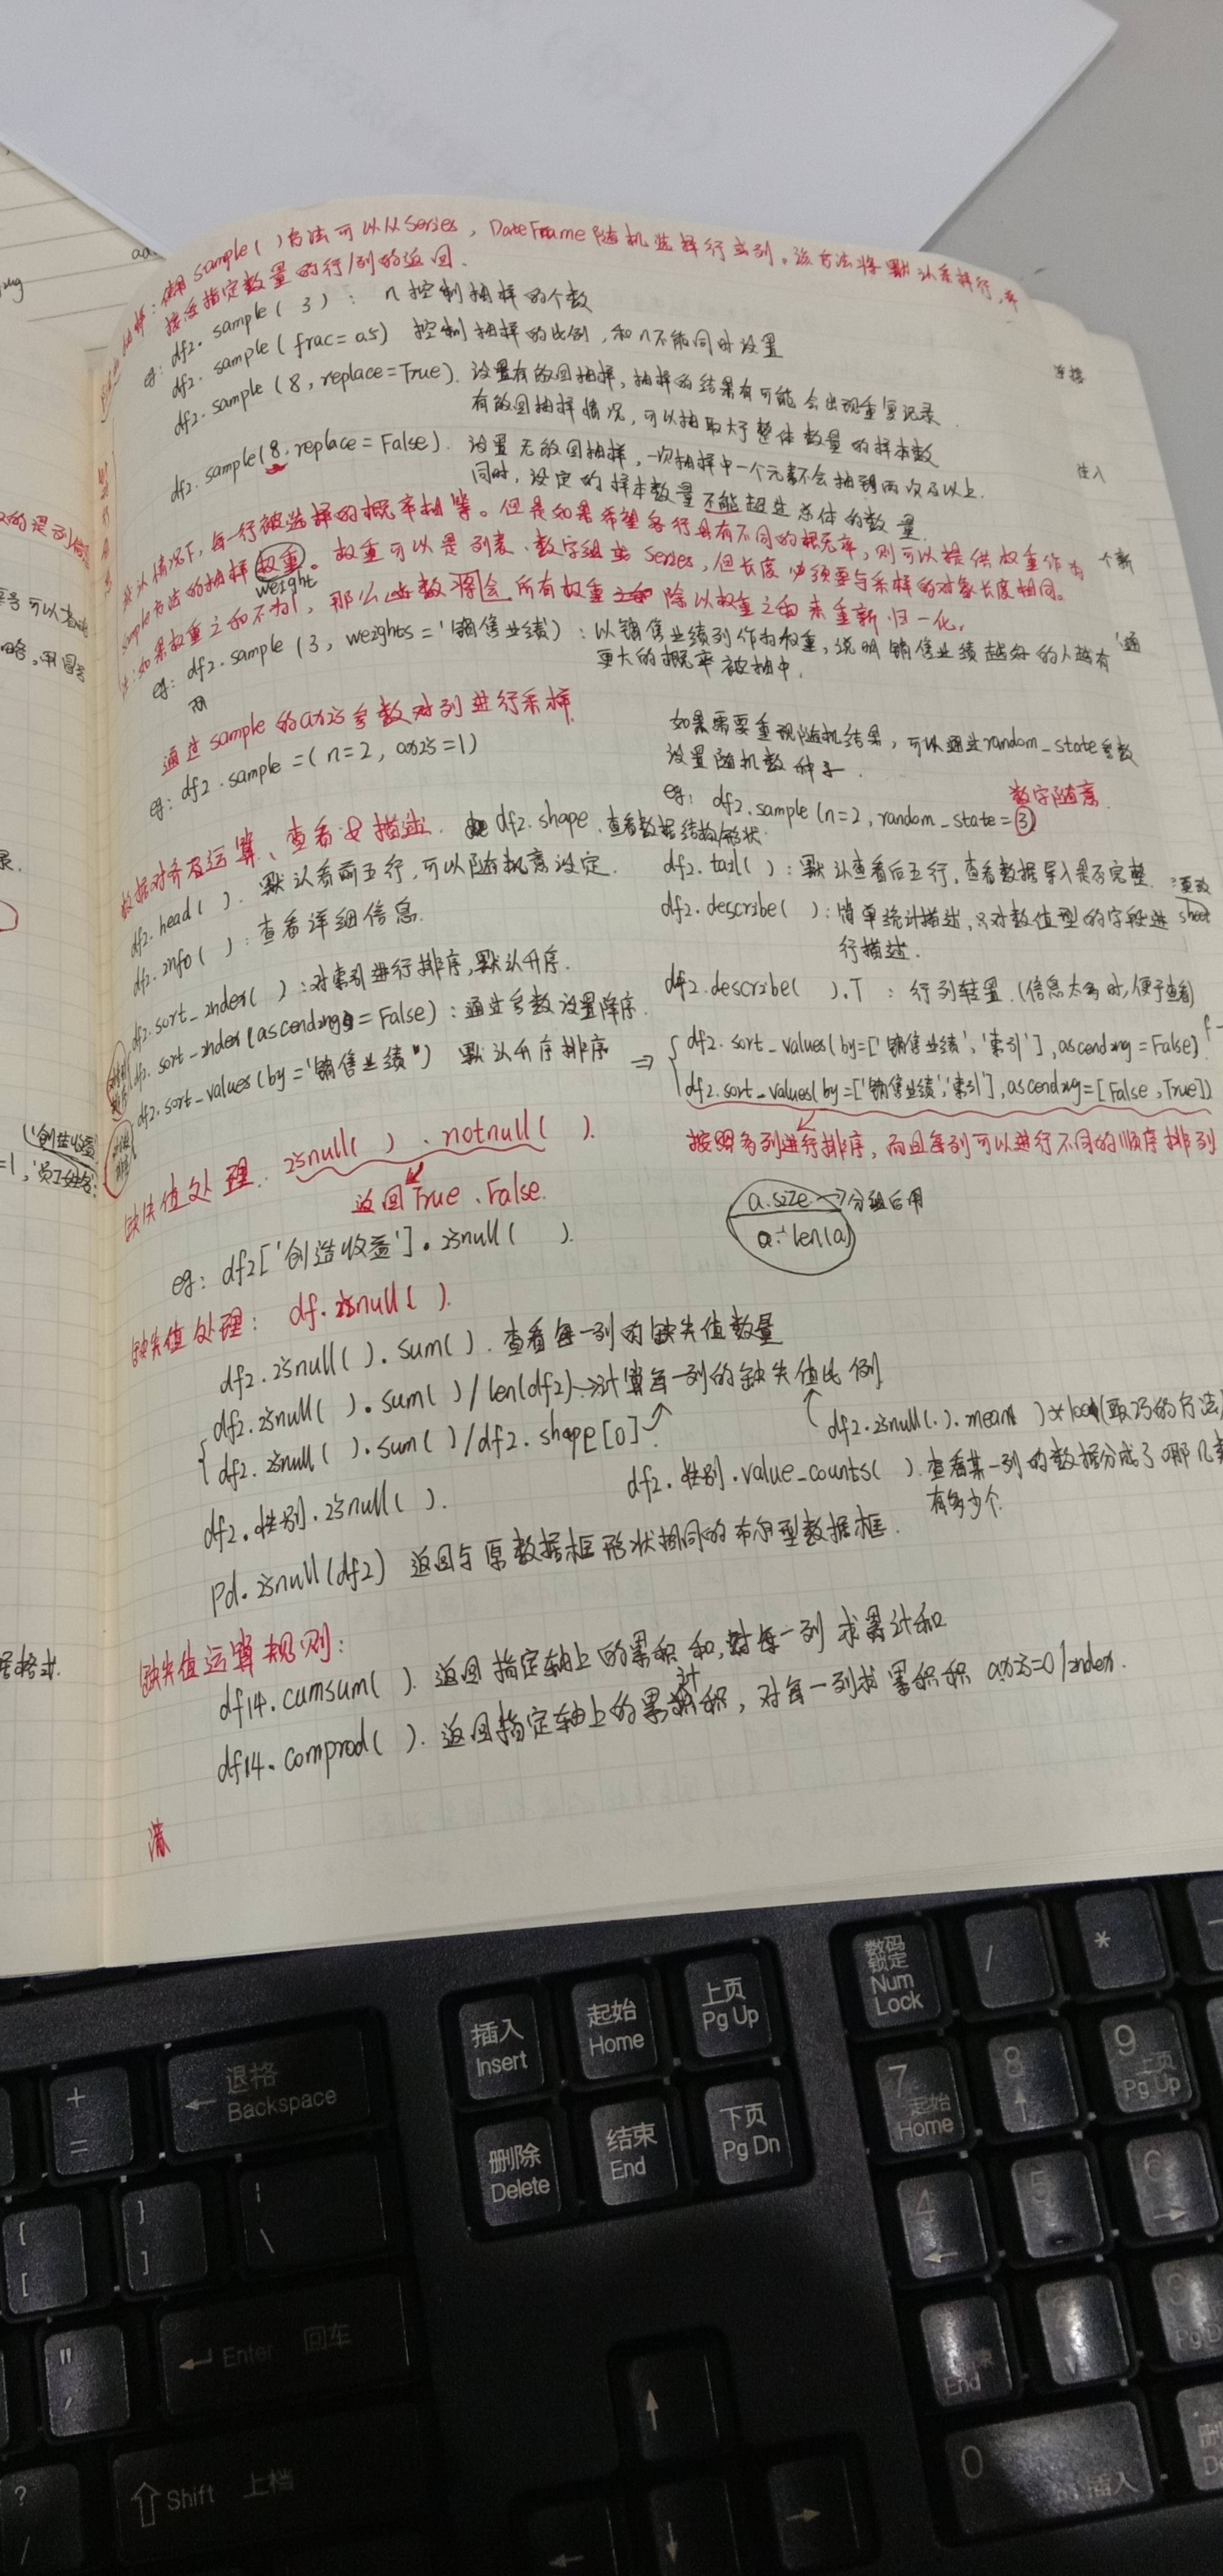 使用 sample( )方法可以从Series, DateFrame随机选择行或列。该方法将默认采样行,并
接受指定数量的行/列的返回.
eg: df2. sample( 3 ): n控制抽样的个数
df2. sample( frac=0.5) 控制抽样的比例,和n不能同时设置
df2. sample (8, replace=True). 设置有放回抽样,抽样的结果有可能会出现重复记录.
有放回抽样情况,可以抽取大于整体数量的样本数
df2. sample(8. replace = False). 设置无放回抽样,一次抽样中一个元素不会抽到两次及以上.
同时,设定的样本数量不能超过总体的数量.
默认情况下,每一行被选择的概率相等。但是如果希望各行具有不同的概率,则可以提供权重作为
sample方法的抽样权重。权重可以是列表、数字组或Series,但长度必须要与采样的对象长度相同。
weight
注:如果权重之和不为1,那么 数将会 所有权重 除以权重之和来重新归一化.
eg: df2. sample (3, weights = '销售业绩'): 以销售业绩列作为权重,说明销售业绩越好的人越有
更大的概率被抽中.
通过sample的axis参数对列进行采样.
eg: df2. sample =( n=2, axis=1)
如果需要重现随机结果,可以通过random_state参数
设置随机数种子.
数字随意.
eg: df2. sample (n=2, random_state=3)
数据对齐及运算、查看及描述. df2. shape. 查看数据结构/形状.
df2. head( ). 默认看前五行,可以随机意设定.
df2. tail( ): 默认查看后五行,查看数据导入是否完整.
df2. info( ): 查看详细信息.
df2. describe( ): 简单统计描述,只对数值型的字段进
行描述.
df2. sort_index( ): 对索引进行排序,默认升序.
df2. describe( ).T : 行列转置. (信息太多时,便于查看)
df2. sort_index(ascending = False): 通过参数设置降序.
df2. sort_values(by='销售业绩') 默认升序排序 ⇒
df2. sort_values(by=['销售业绩','索引'], ascending = False)
df2. sort_values(by=['销售业绩','索引'], ascending=[False, True])
按照多列进行排序,而且每列可以进行不同的顺序排列
缺失值处理: isnull( ) . notnull( ).
返回True、False.
a.size → 分组后用
a:len(a)
eg: df2['创造收益']. isnull( ).
缺失值处理: df. isnull( ).
df2. isnull( ). sum( ). 查看每一列的缺失值数量
df2. isnull( ). sum( ) / len(df2) → 计算每一列的缺失值比例
df2. isnull( ). sum( )/df2. shape[0]
df2. isnull( ). mean( )*100 (取巧的方法)
df2. 性别. isnull( ).
df2. 性别. value_counts( ). 查看某一列的数据分成了哪几类
有多少个.
Pd. isnull(df2) 返回与原数据框形状相同的布尔型数据框.
缺失值运算规则:
df14. cumsum( ). 返回指定轴上的累积和,对每一列求累计和
df14. comprod( ). 返回指定轴上的累计积,对每一列求累积积 axis=0/index.
插入
Insert
起始
Home
上页
Pg Up
数码
锁定
Num
Lock
/
*
退格
Backspace
+
=
删除
Delete
结束
End
下页
Pg Dn
7
起始
Home
8
9
上页
Pg Up
4
5
6
Enter 回车
End
Shift 上档
0
插入